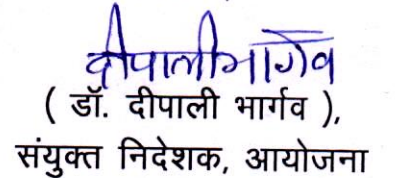 दीपाली भार्गव
( डॉ. दीपाली भार्गव ),
संयुक्त निदेशक, आयोजना